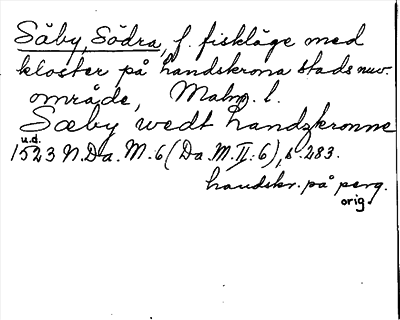 Säby, Södra, f. fiskläge med
kloster på Landskrona stads nuv.
område, Malm. l.
Sæby wedt Landzkronne
u.d.
1523 N.Da.M.6 (Da.M.II.6), s. 283.
handskr. på perg.
orig.